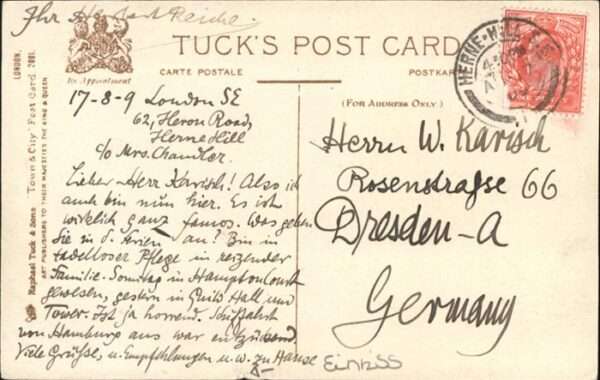 Ihr Herbert Reiche.
By Appointment
TUCK'S POST CARD
CARTE POSTALE
POSTKARTE
(FOR ADDRESS ONLY.)
HERNE-HILL S.E
LONDON.
Raphael Tuck & Sons "Town & City" Post Card 2001.
ART PUBLISHERS TO THEIR MAJESTIES THE KING & QUEEN
17-8-9 London SE
62, Heron Road,
Herne Hill
c/o Mrs. Chandler.
Lieber Herr Karisch! Also ich
auch bin nun hier. Es ist
wirklich ganz famos. Was geben
Sie in d. Ferien an? Bin in
tadelloser Pflege in reizender
Familie. Sonntag in Hampton Court
gewesen, gestern in Guild Hall und
Tower. Ist ja horrend. Schiffahrt
von Hamburg aus war entzückend
Viele Grüße, u. Empfehlungen u.w. zu Hause
Herrn W. Karisch
Rosenstraße 66
Dresden-A
Germany
Einriss